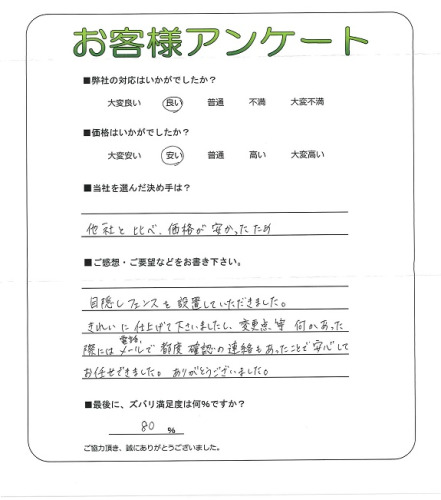 お客様アンケート
■弊社の対応はいかがでしたか？
大変良い 良い 普通 不満 大変不満
■価格はいかがでしたか？
大変安い 安い 普通 高い 大変高い
■当社を選んだ決め手は？
他社と比べ、価格が安かったため
■ご感想・ご要望などをお書き下さい。
目隠しフェンスを設置していただきました。
きれいに仕上げて下さいましたし、変更点等何かあった
際には電話、メールで都度確認の連絡もあったことで安心して
お任せできました。ありがとうございました。
■最後に、ズバリ満足度は何%ですか？
80 %
ご協力頂き、誠にありがとうございました。